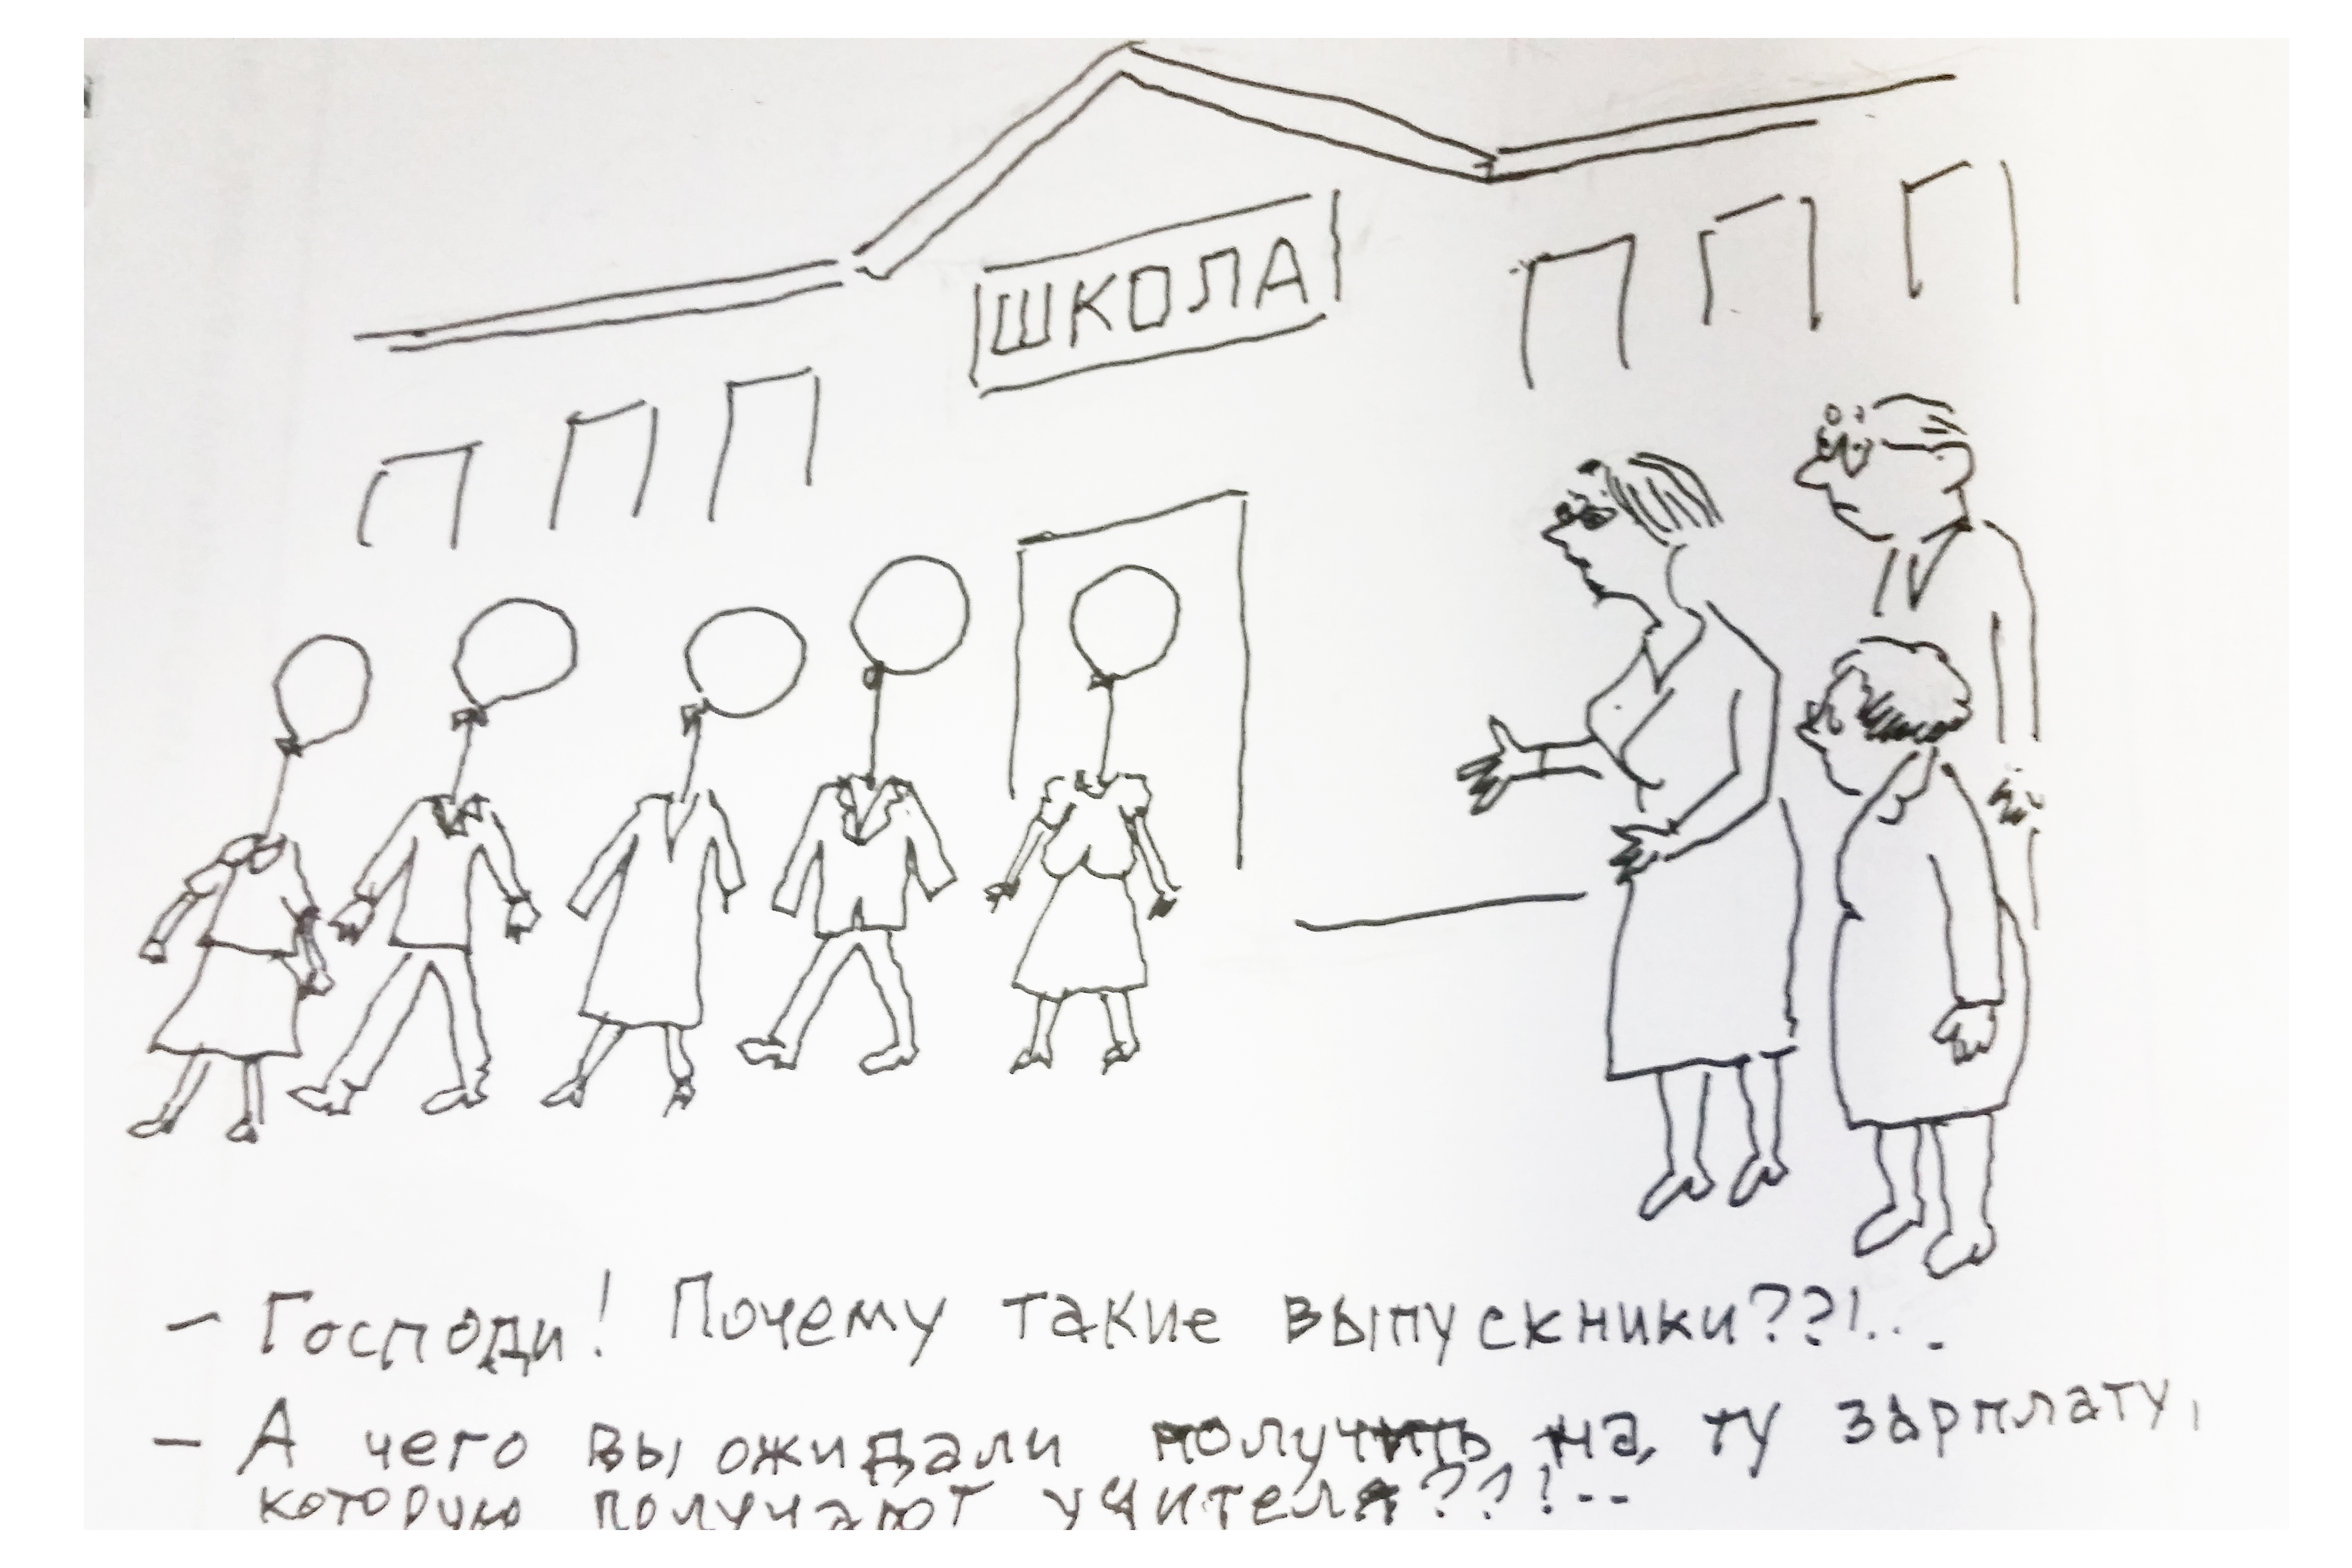 ШКОЛА
– Господи! Почему такие выпускники??!...
– А чего вы ожидали получить на ту зарплату,
которую получают учителя??!--